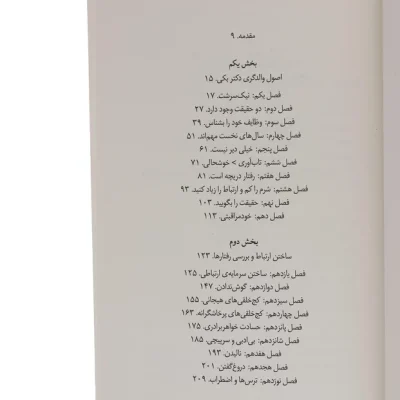 مقدمه. ۹
بخش یکم
اصول والدگری دکتر بکی. ۱۵
فصل یکم: نیک‌سرشت. ۱۷
فصل دوم: دو حقیقت وجود دارد. ۲۷
فصل سوم: وظایف خود را بشناس. ۳۹
فصل چهارم: سال‌های نخست مهم‌اند. ۵۱
فصل پنجم: خیلی دیر نیست. ۶۱
فصل ششم: تاب‌آوری > خوشحالی. ۷۱
فصل هفتم: رفتار دریچه است. ۸۱
فصل هشتم: شرم را کم و ارتباط را زیاد کنید. ۹۳
فصل نهم: حقیقت را بگویید. ۱۰۳
فصل دهم: خودمراقبتی. ۱۱۳
بخش دوم
ساختن ارتباط و بررسی رفتارها. ۱۲۳
فصل یازدهم: ساختن سرمایه‌ی ارتباطی. ۱۲۵
فصل دوازدهم: گوش‌ندادن. ۱۴۷
فصل سیزدهم: کج‌خلقی‌های هیجانی. ۱۵۵
فصل چهاردهم: کج‌خلقی‌های پرخاشگرانه. ۱۶۳
فصل پانزدهم: حسادت خواهربرادری. ۱۷۵
فصل شانزدهم: بی‌ادبی و سرپیچی. ۱۸۵
فصل هفدهم: نالیدن. ۱۹۳
فصل هجدهم: دروغ‌گفتن. ۲۰۱
فصل نوزدهم: ترس‌ها و اضطراب. ۲۰۹